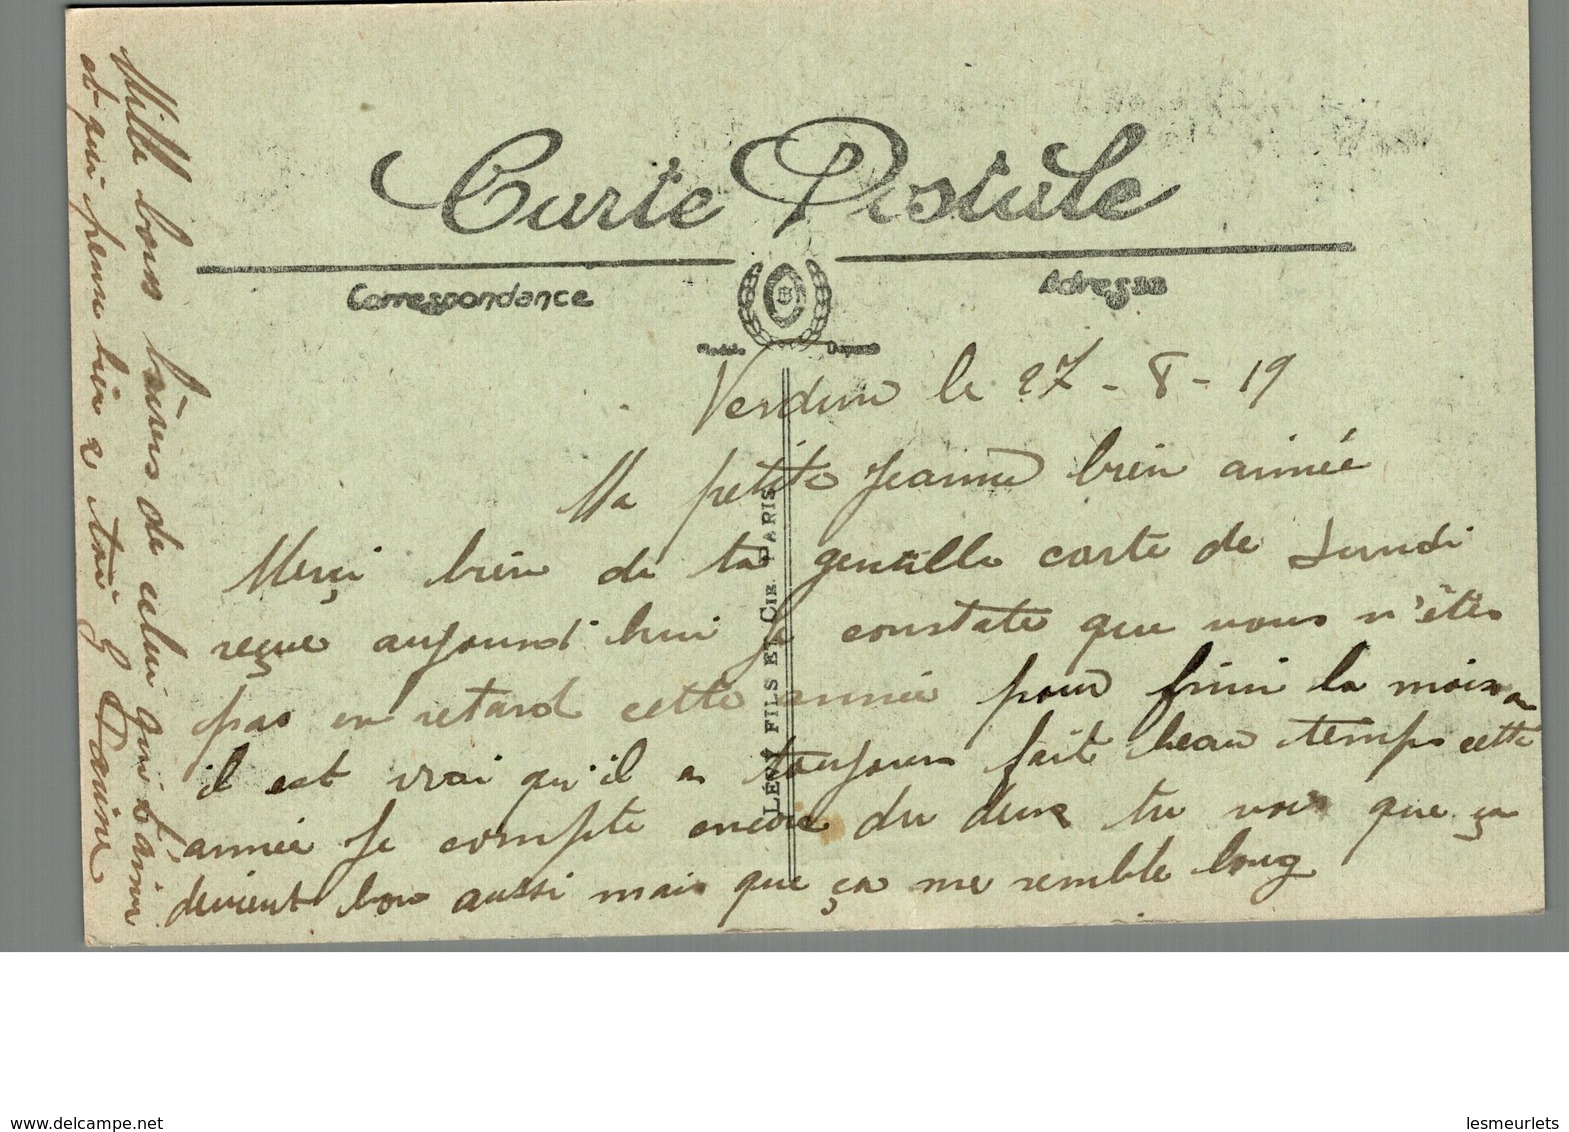 Carte Postale
Correspondance
Adresse
Modèle Déposé
LÉVY FILS ET CIE. PARIS
Verdun le 27 - 8 - 19
Ma petite Jeanne bien aimée
Merçi bien de ta gentille carte de Lundi
reçue aujourd'hui Je constate que vous n'êtes
pas en retard cette année pour finir la moisson
il est vrai qu'il a toujours fait beau temps cette
année Je compte encore du deux tu vois que ça
devient bon aussi mais que ça me semble long
Mille bons baisers de celui qui t'aime
et qui pense bien a toi
www.delcampe.net
lesmeurlets